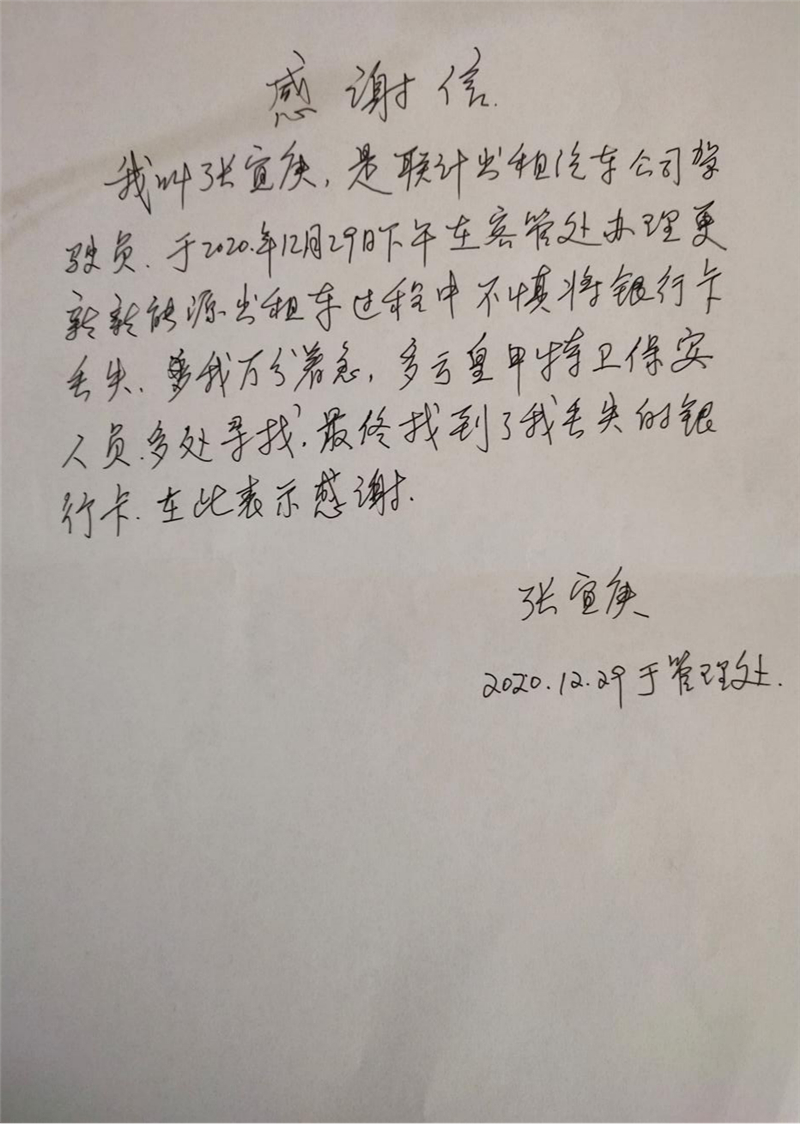 感谢信.
我叫张宜庚，是联计出租汽车公司驾
驶员.于2020.年12月29日下午在客管处办理更
新新能源出租车过程中不慎将银行卡
丢失.我万分着急，多亏皇甲特卫保安
人员.多处寻找.最终找到了我丢失的银
行卡.在此表示感谢.
张宜庚
2020.12.29于管理处.